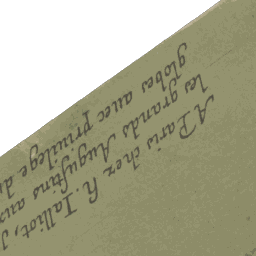 A Paris chez H. Ialliot, J
les grands Augustins aux
globes avec privilege du